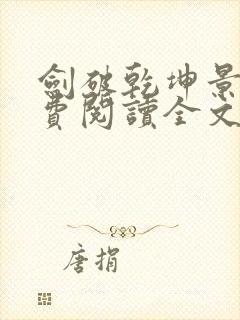 劍破乾坤景
費閱讀全文
唐捐